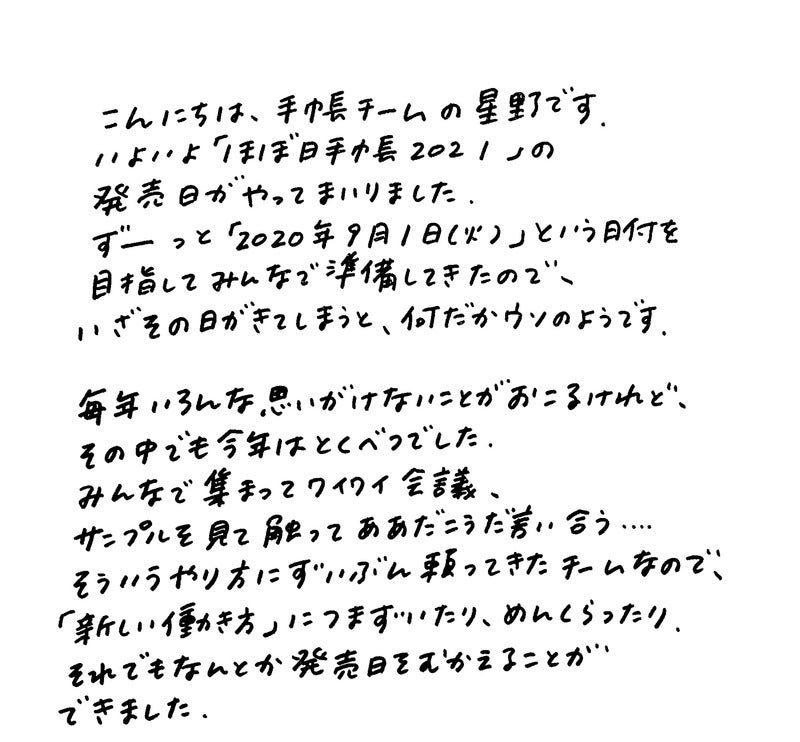 こんにちは、手帳チームの星野です.
いよいよ「ほぼ日手帳2021」の
発売日がやってまいりました.
ずーっと「2020年9月1日(火)」という日付を
目指してみんなで準備してきたので、
いざその日がきてしまうと、何だかウソのようです.
毎年いろんな思いがけないことがおこるけれど、
その中でも今年はとくべつでした.
みんなで集まってワイワイ会議、
サンプルを見て触ってああだこうだ言い合う‥‥
そういうやり方にずいぶん頼ってきたチームなので、
「新しい働き方」につまずいたり、めんくらったり.
それでもなんとか発売日をむかえることが
できました.